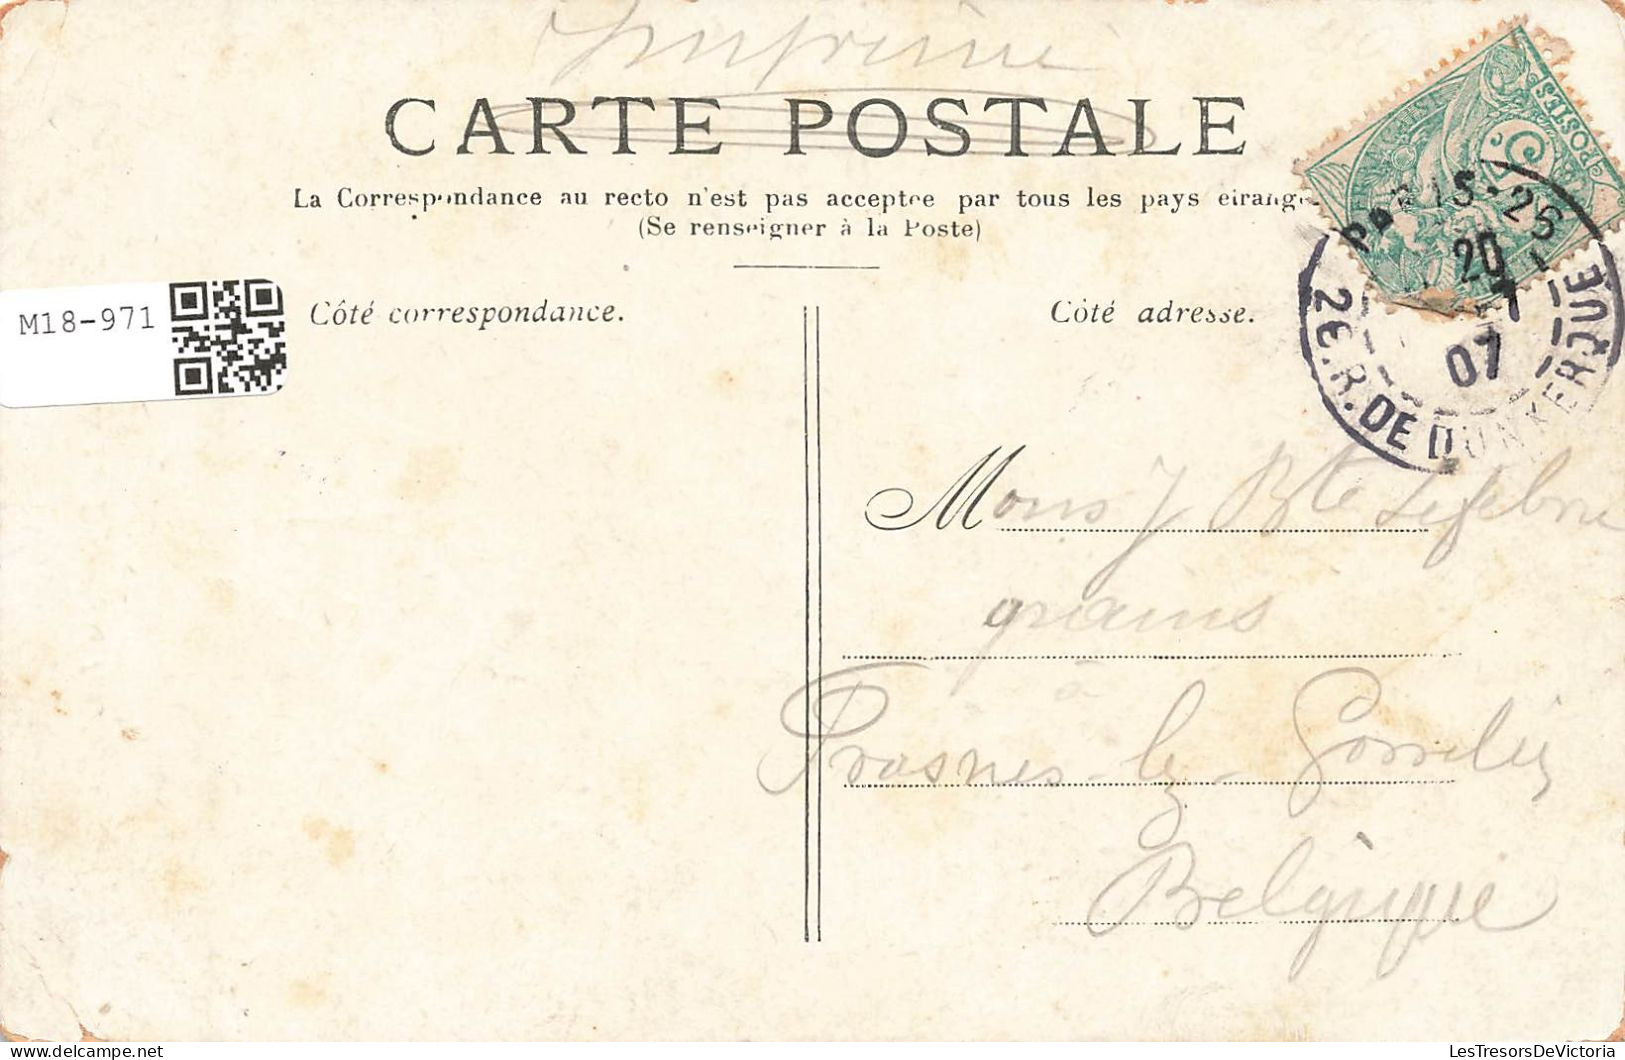 Imprimé
CARTE POSTALE
La Correspondance au recto n'est pas acceptée par tous les pays étrang
(Se renseigner à la Poste)
M18-971
Côté correspondance.
Côté adresse.
POSTES
PARIS-26
20
07
26, R. DE DUNKERQUE
Mons J Bte Lefebvre
grains
à
Frasnes-lez-Gosselies
Belgique
LesTresorsDeVictoria